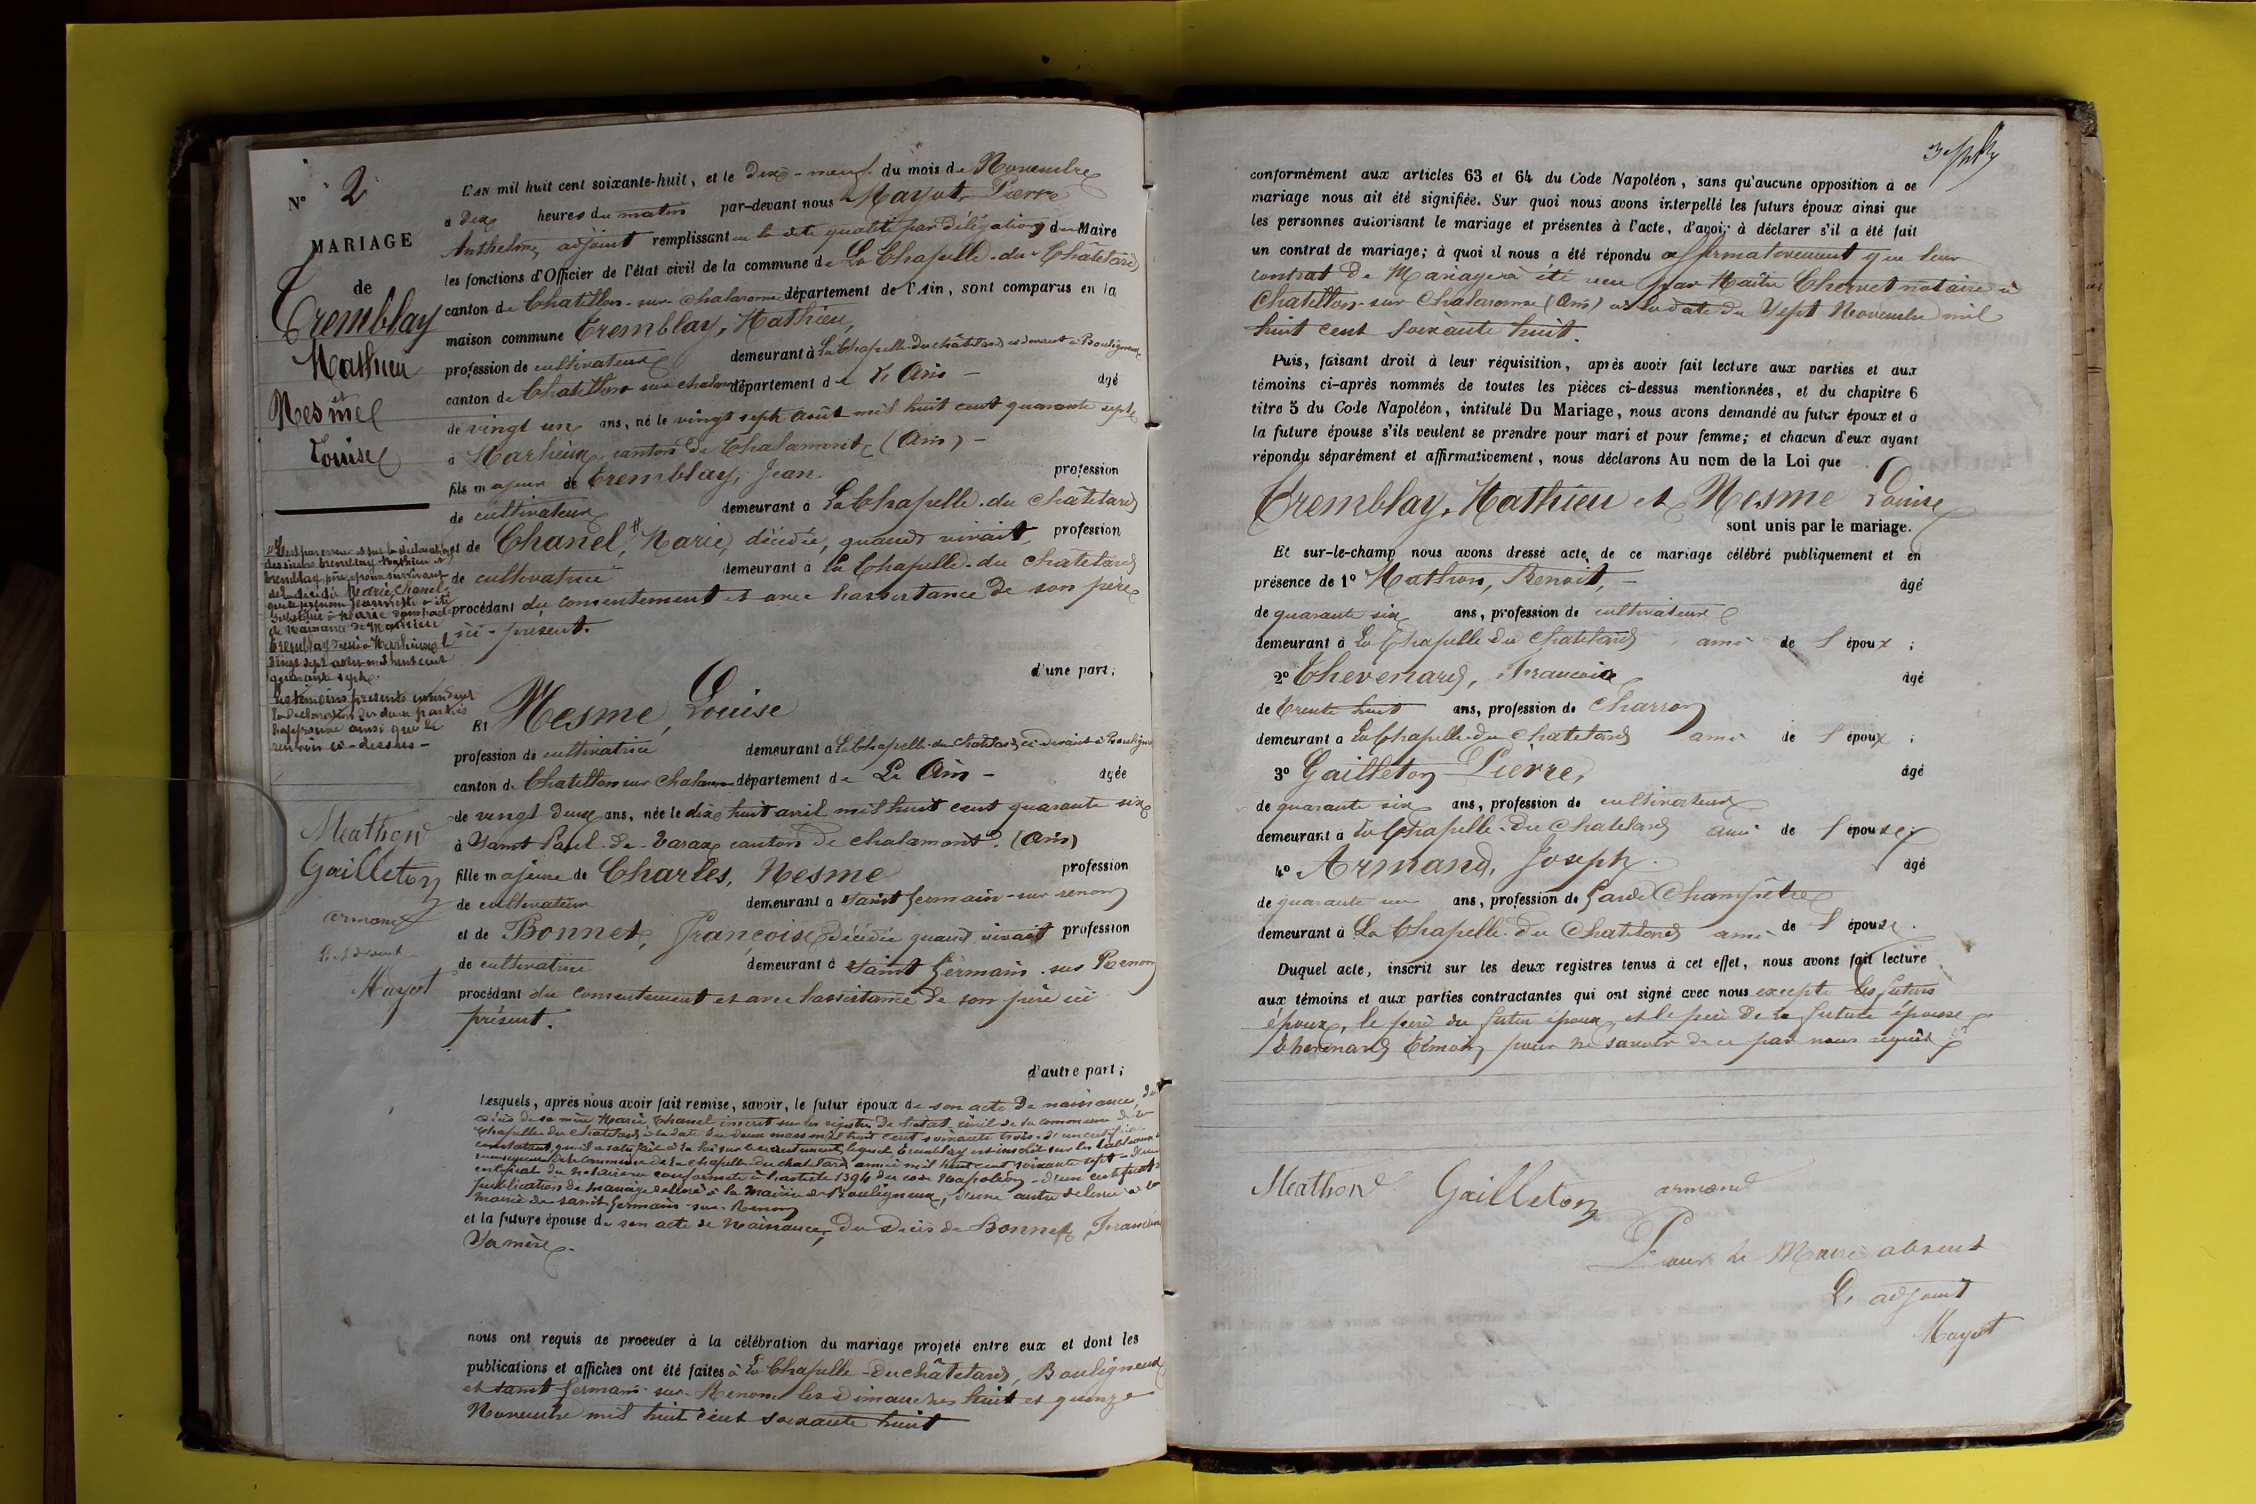 N° 2
MARIAGE
de
Tremblay
Mathieu
et
Nesme
Louise
L'AN mil huit cent soixante-huit, et le dix-neuf du mois de Novembre
à dix heures du matin par-devant nous Mayot, Pierre
Anthelme, adjoint remplissant en la dite qualité par délégation du Maire
les fonctions d'Officier de l'état civil de la commune de La Chapelle-du-Châtelard
canton de Chatillon-sur-Chalaronne département de l'Ain, sont comparus en la
maison commune Tremblay, Mathieu,
profession de cultivateur demeurant à La Chapelle-du-châtelard et devant à Bouligneux
canton de Chatillon sur Chalaronne département de L'Ain – âgé
de vingt un ans, né le vingt sept Août mil huit cent quarante sept
à Marlieux, canton de Chalamont (Ain) –
fils majeur de Tremblay, Jean. profession
de cultivateur demeurant à La Chapelle-du Châtelard
et de Chanel, # Marie, décédée, quand vivait, profession
de cultivatrice demeurant à La Chapelle-du Chatelard
procédant du consentement et avec l'assistance de son père
ici-présent.
d'une part;
# C'est par erreur et sur la déclaration
des sieurs Tremblay Mathieu et
Tremblay père époux survivant
de la décédée Marie Chanel
que le prénom Jeannette a été
substitué à Marie dans l'acte
de Naissance de Mathieu
Tremblay dressé à Marlieux le
vingt sept août mil huit cent
quarante sept.
Les témoins présents
la déclaration des deux parties
Approuvé ainsi que le
renvoi ci-dessus –
Mathon
Gailleton
armand
L'adjoint
Mayot
Et Nesme, Louise
profession de cultivatrice demeurant à La Chapelle-du-Chatelard, ci-devant à Bouligneux
canton de Chatillon sur Chalaronne département de L'Ain – âgée
de vingt deux ans, née le dix huit avril mil huit cent quarante six
à Saint Paul-de-Varax canton de Chalamont. (Ain)
fille majeure de Charles, Nesme profession
de cultivateur demeurant à Saint Germain-sur-renon
et de Bonnet, Françoise, décédée quand vivait profession
de cultivatrice demeurant à Saint Germain-sur Renon
procédant du consentement et avec l'assistance de son père ici
présent.
d'autre part;
Lesquels, après nous avoir fait remise, savoir, le futur époux de son acte de naissance, du
décès de sa mère Marie Chanel inscrit sur les registres de l'état civil de la commune de la
Chapelle-du-Chatelard à la date du deux mars mil huit cent soixante trois. D'un certificat
constatant qu'il a satisfait à la loi sur le recrutement, lequel Tremblay est inscrit sur les tableaux de
recensement de la commune de la Chapelle-du-chatelard année mil huit cent soixante sept – d'un
certificat du notaire en conformité à l'article 1394 du code Napoléon – d'un certificat de
publication de mariage délivré à la Mairie de Bouligneux, d'une autre délivré à la
mairie de Saint Germain-sur-Renon
et la future épouse de son acte de Naissance, Du décès de Bonnet, Françoise
Sa mère.
nous ont requis de procéder à la célébration du mariage projeté entre eux et dont les
publications et affiches ont été faites à La Chapelle-du-châtelard, Bouligneux
et saint Germain-sur-Renon les dimanches huit et quinze
Novembre mil huit cent soixante huit
conformément aux articles 63 et 64 du Code Napoléon, sans qu'aucune opposition à ce
mariage nous ait été signifiée. Sur quoi nous avons interpellé les futurs époux ainsi que
les personnes autorisant le mariage et présentes à l'acte, d'avoir à déclarer s'il a été fait
un contrat de mariage; à quoi il nous a été répondu affirmativement que leur
contrat de Mariage a été reçu par Maître Chervet notaire à
Chatillon-sur Chalaronne (Ain) à la date du Sept Novembre mil
huit cent soixante huit.
Puis, faisant droit à leur réquisition, après avoir fait lecture aux parties et aux
témoins ci-après nommés de toutes les pièces ci-dessus mentionnées, et du chapitre 6
titre 5 du Code Napoléon, intitulé Du Mariage, nous avons demandé au futur époux et à
la future épouse s'ils veulent se prendre pour mari et pour femme; et chacun d'eux ayant
répondu séparément et affirmativement, nous déclarons Au nom de la Loi que
Tremblay, Mathieu et Nesme Louise
sont unis par le mariage.
Et sur-le-champ nous avons dressé acte de ce mariage célébré publiquement et en
présence de 1° Mathon, Benoit, – âgé
de quarante six ans, profession de cultivateur
demeurant à La Chapelle du Chatelard, ami de l'époux;
2° Thevenard, François âgé
de trente huit ans, profession de Charron
demeurant à La Chapelle-du Chatelard ami de l'époux;
3° Gailleton Pierre, âgé
de quarante six ans, profession de cultivateur
demeurant à La Chapelle-du Chatelard ami de l'épouse;
4° Armand, Joseph. âgé
de quarante un ans, profession de Garde Champêtre
demeurant à La Chapelle-du Chatelard ami de l'épouse.
Duquel acte, inscrit sur les deux registres tenus à cet effet, nous avons fait lecture
aux témoins et aux parties contractantes qui ont signé avec nous excepté les futurs
époux, le père du futur époux, et le père de la future épouse
Thevenard témoin pour ne savoir de ce par nous requis
Mathon Gailleton armand
Pour le Maire absent
L'adjoint
Mayot